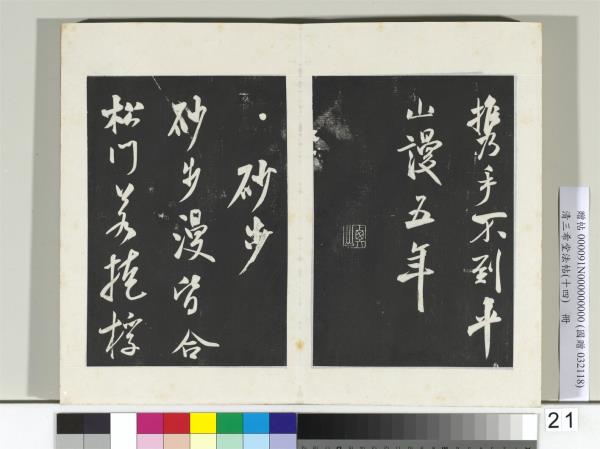 攜手不到平
山漫五年
砂步
砂步漫皆合
松門若掩桴
贈帖 000091N000000000 (國贈 032118)
清三希堂法帖(十四) 冊
21